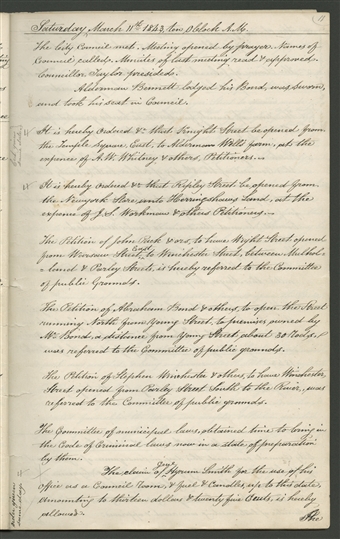 11
Saturday, March 11th 1843, ten O'Clock A.M.
The City Council met. Meeting opened by prayer. Names of
Council called. Minutes of last meeting read & approved.
Councillor Taylor presided.
Alderman Bennett lodged his Bond, was sworn,
and took his seat in Council.
It is hereby Ordered &c that Knight Street be opened from
the Temple Square East, to Alderman Wells' farm, at the
expense of A.W. Whitney & others, Petitioners.
It is hereby ordered &c that Ripley Street be opened from
the New york Store, unto Herringshaws Land, at the
expense of J.S. Workman & others Petitioners.
The Petition of John & ors, to have Wight Street opened
from Warsaw Street, East to Winchester Street, between Mulhol-
-land & Parley Streets, is hereby referred to the Committee
of public Grounds.
The Petition of Abraham Bond & others, to open the Street
running North from Young Street, to premises owned by
Mr Bond, a distance from Young Street about 30 Rods,
was referred to the Committee of public grounds.
The Petition of Stephen Winchester & others, to have Winchester
Street opened from Parley Street South to the River, was
referred to the Committee of public grounds.
The Committee of municipal laws, obtained time to bring in
the Code of Criminal laws now in a state of preparation
by them.
The claim of Genl Hyrum Smith for the use of his
office as a Council Room, & fuel & Candles, up to this date,
amounting to thirteen dollars & twenty five Cents, is hereby
allowed.
The